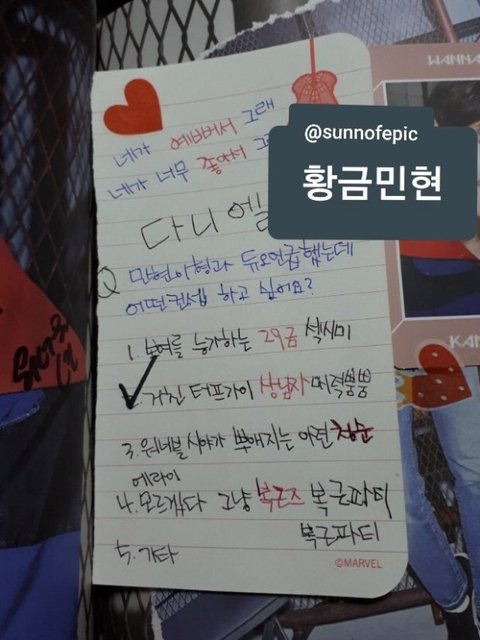 WANNA
@sunnofepic
황금민현
네가 예뻐서 그래
네가 너무 좋아서
다니엘
Q 민현이형과 듀오언급했는데
어떤컨셉 하고 싶어요?
1. 보여를 능가하는 29금 섹시미
2. 거친 터프가이 상남자 매력뿜뿜
3. 워너블 시야가 뿌얘지는 아련청순
에라이
4. 모르겠다 그냥 복근즈 복근파티
복근파티
5. 기타
©MARVEL
KAN